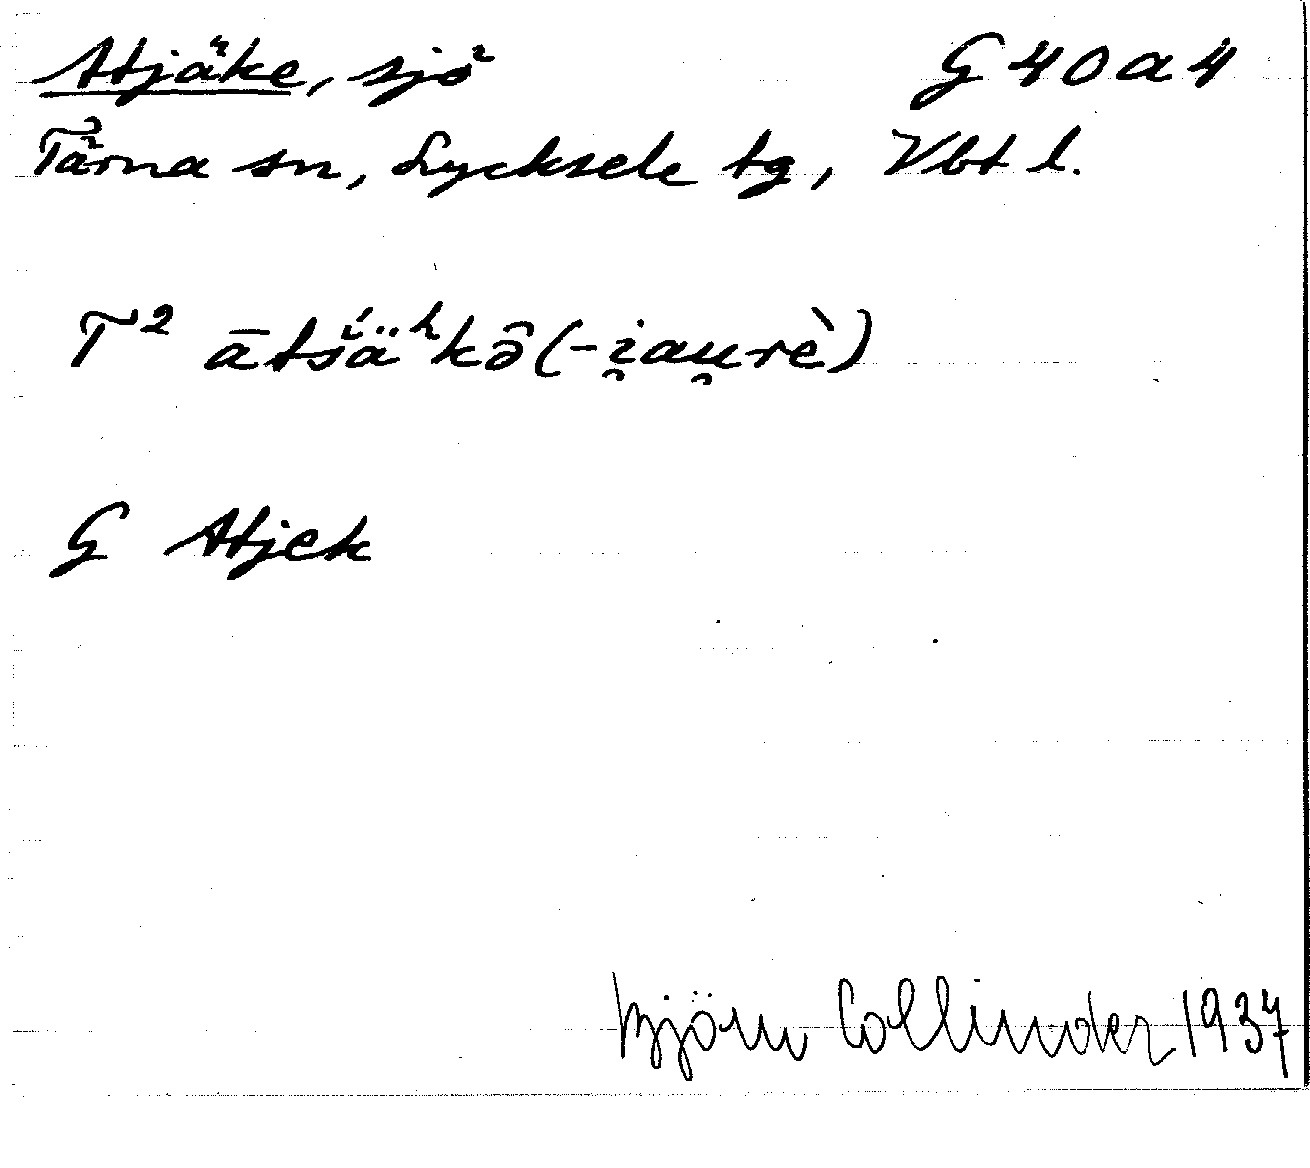 Atjäke, sjö G 40 a 4
Tärna sn, Lycksele tg, Vbt l.
T² ātśäʰkô (-i̯au̯rè)
G Atjek
Björn Collinder 1937